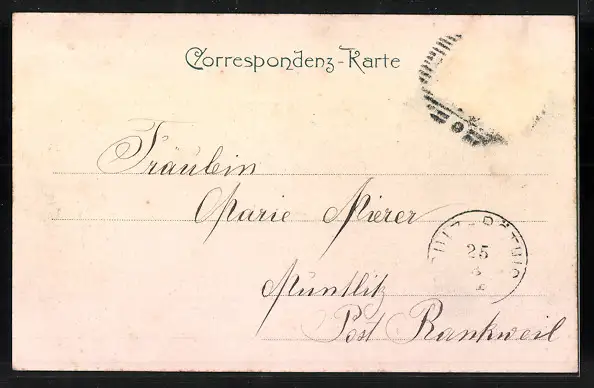 Correspondenz-Karte
Fräulein
Marie Mierer
Müntlitz
Post Rankweil
25